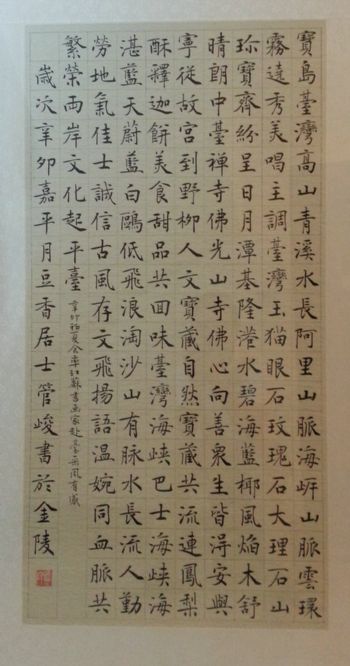 寶島臺灣高山青溪水長阿里山脈海岸山脈雲環
霧遶秀美唱主調臺灣玉猫眼石玫瑰石大理石山
珎寶齊紛呈日月潭基隆港水碧海藍椰風焔木舒
晴朗中臺禅寺佛光山寺佛心向善衆生皆淂安與
寧從故宮到野柳人文寶藏自然寶藏共流連鳳梨
酥釋迦餅美食甜品共回味臺灣海峡巴士海峡海
湛藍天蔚藍白鷗低飛浪淘沙山有脉水長流人勤
勞地氣佳士誠信古風存文飛揚語溫婉同血脈共
繁榮兩岸文化起平臺
辛卯初夏余率江蘇書画家赴臺采風有感
歲次辛卯嘉平月豆香居士管峻書於金陵